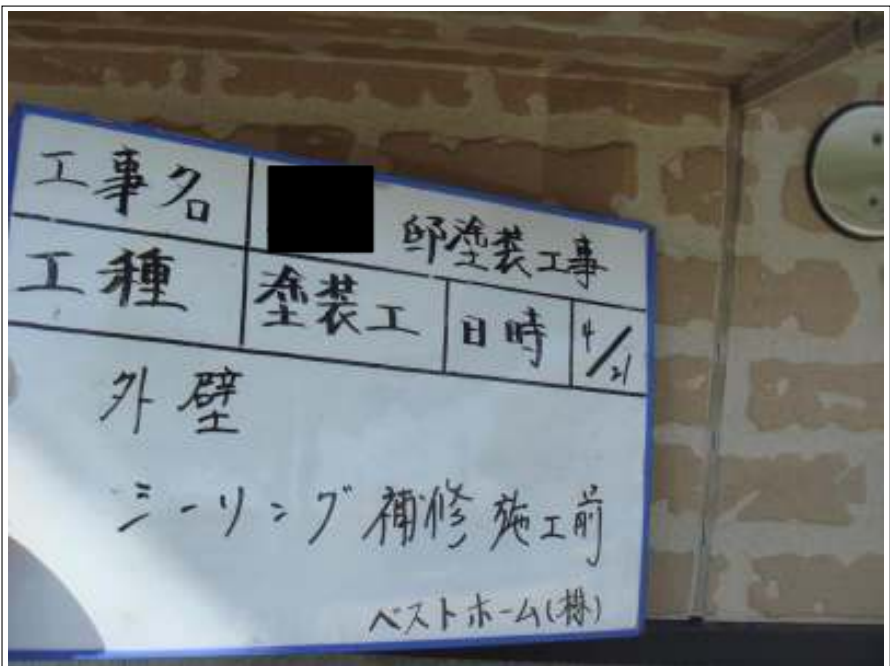 工事名 邸塗装工事
工種 塗装工 日時 4/21
外壁
シーリング補修施工前
ベストホーム(株)